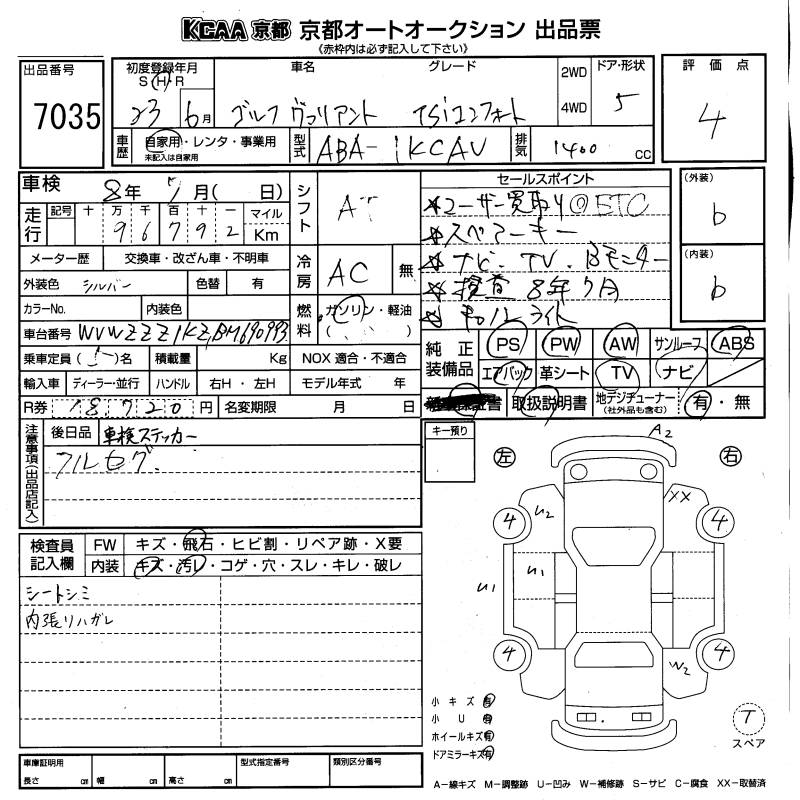 KCAA 京都 京都オートオークション 出品票
《赤枠内は必ず記入して下さい》
出品番号
7035
初度登録年月
S H R
23 6月
車名 グレード
ゴルフ ヴァリアント TSiコンフォート
2WD
4WD
ドア・形状
5
評価点
4
車歴
自家用・レンタ・事業用
未記入は自家用
型式
ABA-1KCAV
排気
1400 cc
車検 8年 7月( 日)
走行
記号 十 万 千 百 十 一 マイル
9 6 7 9 2 Km
シフト
AT
メーター歴 交換車・改ざん車・不明車
外装色 シルバー 色替 有
冷房
AC 無
カラーNo. 内装色
燃料
ガソリン・軽油
( )
車台番号 WVWZZZ1KZBM690993
乗車定員 (5)名 積載量 Kg NOX 適合・不適合
輸入車 ディーラー・並行 ハンドル 右H・左H モデル年式 年
R券 18720円 名変期限 月 日
セールスポイント
☆ユーザー買取り◎ETC
☆スペアーキー
☆ナビ・TV・Bモニター
☆検査 8年7月
☆キセノンライト
(外装)
b
(内装)
b
純正装備品
PS PW AW サンルーフ ABS
エアバック 革シート TV ナビ
保証書 取扱説明書 地デジチューナー(社外品も含む) 有・無
注意事項(出品店記入)
後日品 車検ステッカー
フルセグ
キー預り
検査員記入欄
FW キズ・飛石・ヒビ割・リペア跡・X要
内装 キズ・汚レ・コゲ・穴・スレ・キレ・破レ
シートシミ
内張リハガレ
左 右
A2
U2 XX
4 4
U1 U1
4 4
W2
小キズ有
小U有
ホイールキズ有
ドアミラーキズ有
T
スペア
車庫証明用
長さ cm 幅 cm 高さ cm
型式指定番号 類別区分番号
A-線キズ M-調整跡 U-凹み W-補修跡 S-サビ C-腐食 XX-取替済